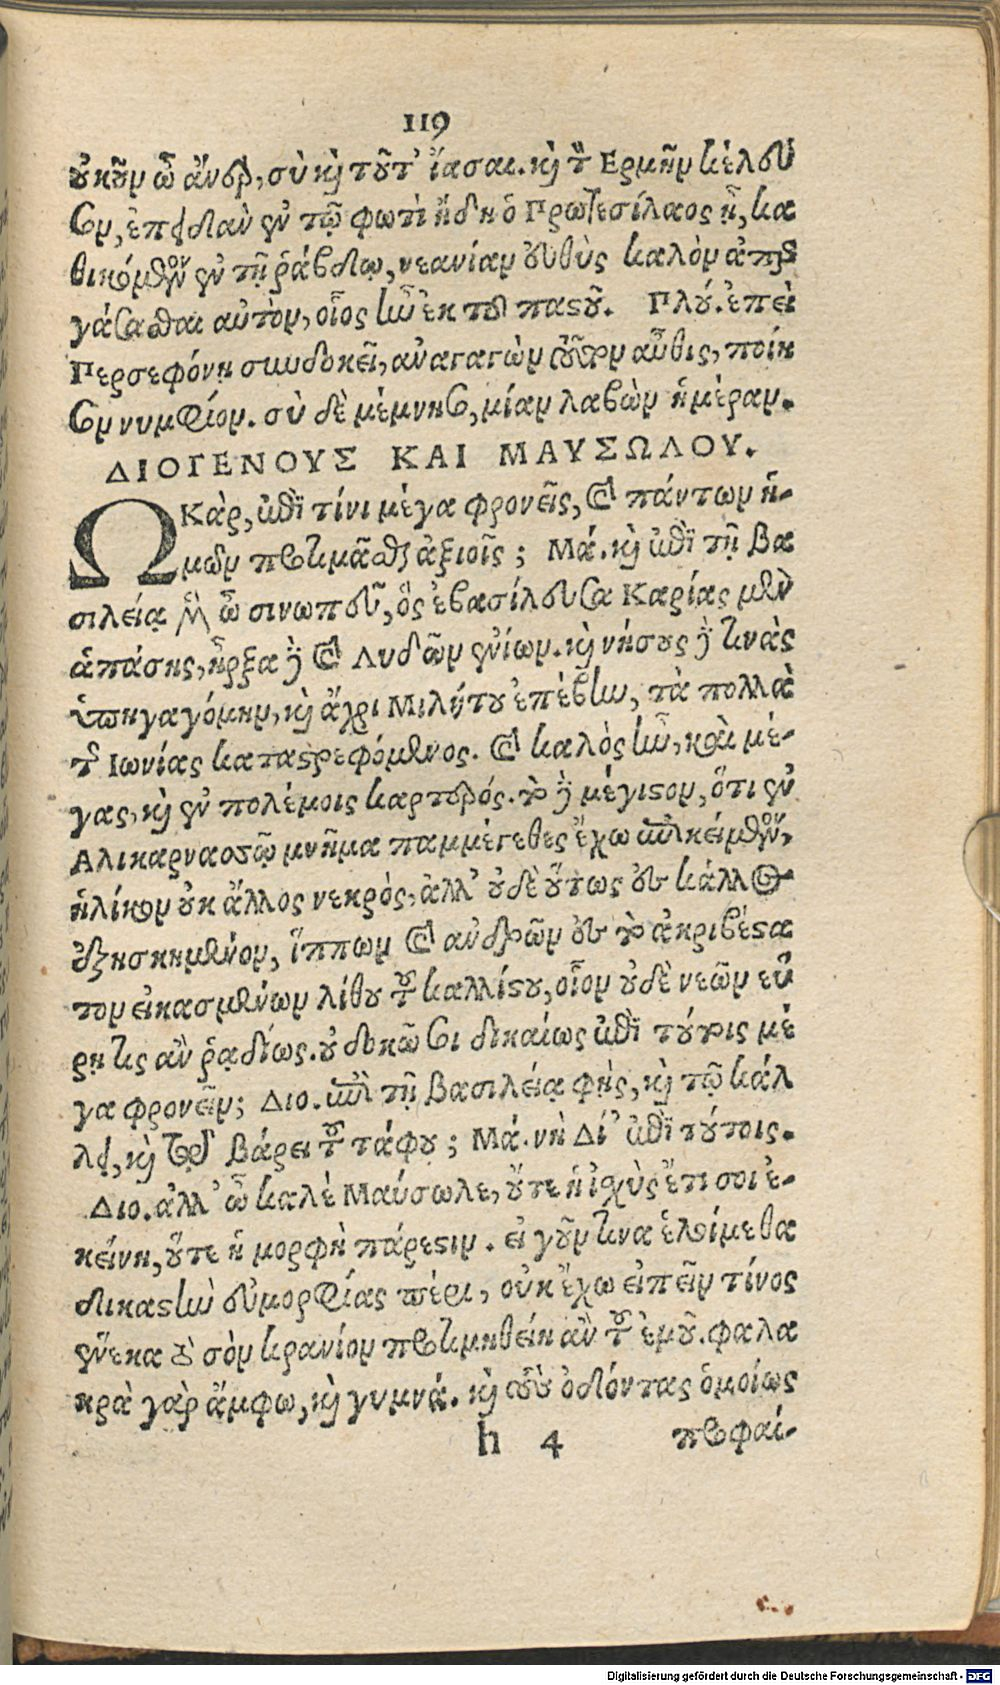 119
οὐκοῦν ὦ ἄνερ, σὺ καὶ τοῦτ᾽ ἴασαι. καὶ τὸν Ἑρμῆν κέλευ
σον, ἐπειδὰν ἐν τῷ φωτὶ ἤδη ὁ Πρωτεσίλαος ᾖ, κα
θικόμενον ἐν τῇ ῥάβδῳ, νεανίαν εὐθὺς καλὸν ἀπερ
γάσασθαι αὐτὸν, οἷος ἦν ἐκ τοῦ παστοῦ. Πλού. ἐπεὶ
Περσεφόνῃ συνδοκεῖ, ἀναγαγὼν τοῦτον αὖθις, ποίη
σον νυμφίον. σὺ δὲ μέμνησο, μίαν λαβὼν ἡμέραν.
ΔΙΟΓΕΝΟΥΣ ΚΑΙ ΜΑΥΣΩΛΟΥ.
Ω Κὰρ, ἐπὶ τίνι μέγα φρονεῖς, καὶ πάντων ἡ-
μῶν προτιμᾶσθαι ἀξιοῖς; Μά. καὶ ἐπὶ τῇ βα
σιλείᾳ μὲν ὦ σινωπεῦ, ὃς ἐβασίλευσα Καρίας μὲν
ἁπάσης, ἦρξα δὲ καὶ Λυδῶν ἐνίων. καὶ νήσους δὲ τινὰς
ὑπηγαγόμην, καὶ ἄχρι Μιλήτου ἐπέβην, τὰ πολλὰ
τῆς Ἰωνίας καταστρεφόμενος. καὶ καλὸς ἦν, καὶ μέ-
γας, καὶ ἐν πολέμοις καρτερός. τὸ δὲ μέγιστον, ὅτι ἐν
Ἁλικαρνασσῷ μνῆμα παμμέγεθες ἔχω ἐπικείμενον,
ἡλίκον οὐκ ἄλλος νεκρὸς, ἀλλ᾽ οὐδὲ οὕτως ἐς κάλλος
ἐξησκημένον, ἵππων καὶ ἀνδρῶν ἐς τὸ ἀκριβέστα
τον εἰκασμένων λίθου τοῦ καλλίστου, οἷον οὐδὲ νεὼν εὕ
ρῃ τις ἂν ῥᾳδίως. οὐ δοκῶ σοι δικαίως ἐπὶ τούτοις μέ
γα φρονεῖν; Διο. ἐπὶ τῇ βασιλείᾳ φῂς, καὶ τῷ κάλ
λει, καὶ τῷ βάρει τοῦ τάφου; Μά. νὴ Δί᾽ ἐπὶ τούτοις.
Διο. ἀλλ᾽ ὦ καλὲ Μαύσωλε, οὔτε ἡ ἰσχὺς ἔτι σοι ἐ-
κείνη, οὔτε ἡ μορφὴ πάρεστιν. εἰ γοῦν τινα ἑλοίμεθα
δικαστὴν εὐμορφίας πέρι, οὐκ ἔχω εἰπεῖν τίνος
ἕνεκα τὸ σὸν κρανίον προτιμηθείη ἂν τοῦ ἐμοῦ. φαλα
κρὰ γὰρ ἄμφω, καὶ γυμνά. καὶ τοὺς ὀδόντας ὁμοίως
h 4 προφαί-
Digitalisierung gefördert durch die Deutsche Forschungsgemeinschaft - DFG